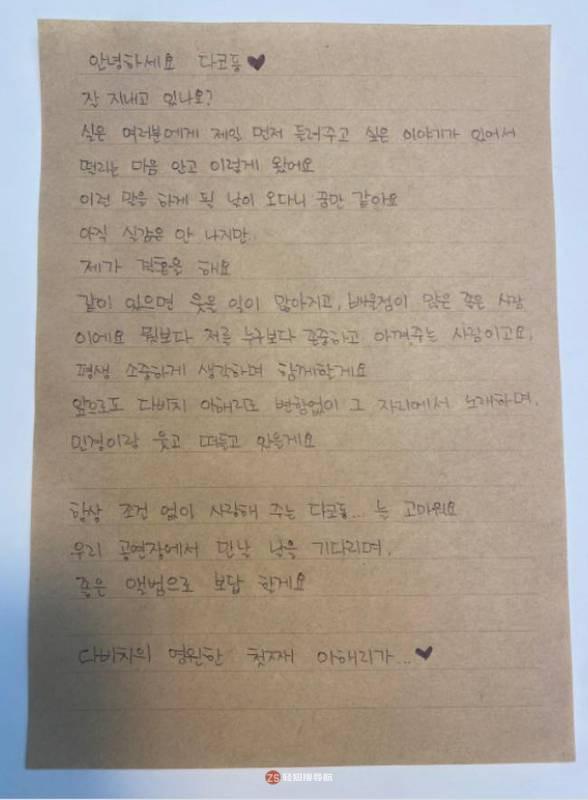 안녕하세요 다코동♥
잘 지내고 있나요?
실은 여러분에게 제일 먼저 들려주고 싶은 이야기가 있어서
떨리는 마음 안고 이렇게 왔어요
이런 말을 하게 될 날이 오다니 꿈만 같아요
아직 실감은 안 나지만
제가 결혼을 해요
같이 있으면 웃을 일이 많아지고, 배울점이 많은 좋은 사람
이에요 뭣보다 저를 누구보다 존중하고 아껴주는 사람이고요.
평생 소중하게 생각하며 함께할게요
앞으로도 다비치 이해리도 변함없이 그 자리에서 노래하며,
민경이랑 웃고 떠들고 있을게요
항상 조건 없이 사랑해 주는 다코동... 늘 고마워요
우리 공연장에서 만날 날을 기다리며,
좋은 앨범으로 보답 할게요
다비치의 영원한 첫째 이해리가...♥
ZS 轻知搜导航